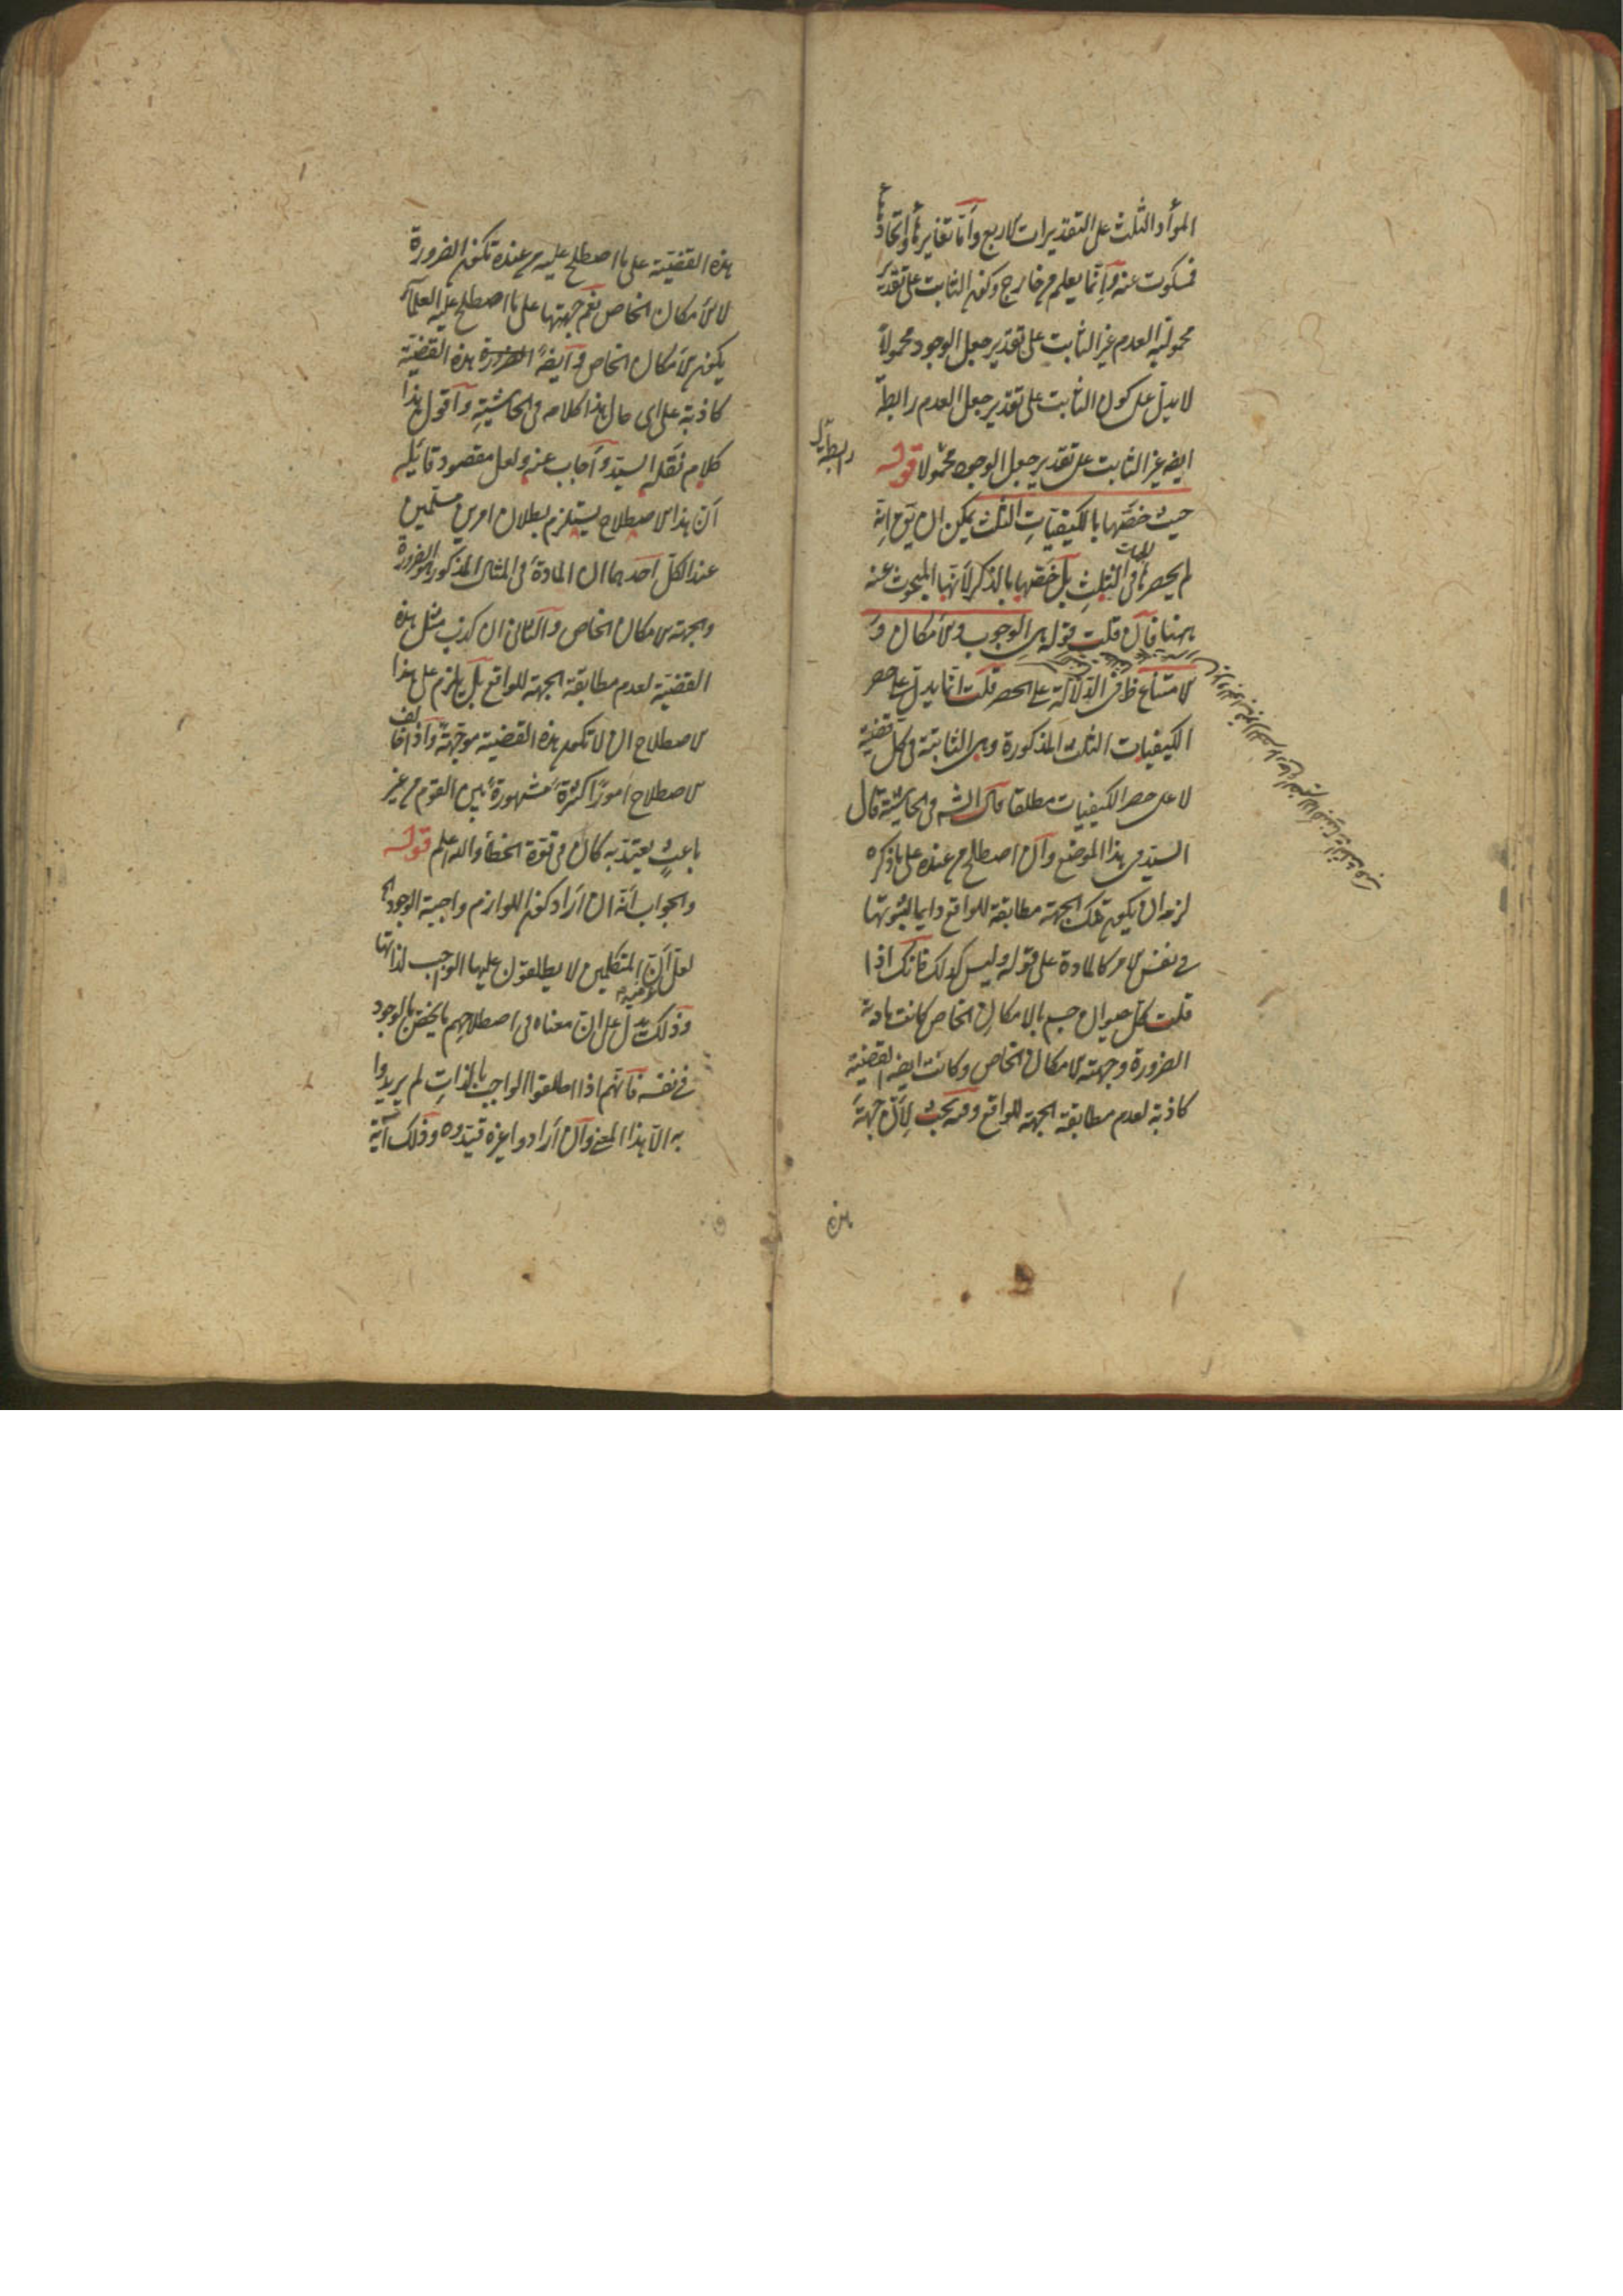 المواد الثلث على التقديرات الاربع وأمّا تغايرها واتحادها
فمسكوت عنه وإنّما يعلم من خارج وكون الثابت على تقدير
محمولية العدم غير الثابت على تقدير جعل الوجود محمولاً
لا يدل على كون الثابت على تقدير جعل العدم رابطة
ايضه غير الثابت على تقدير جعل الوجود محمولا قوله
رابطة
حيث خصّها بالكيفيات الثلث يمكن ان يق انه
لم يحصرها فى الثلث بل خصّها بالذكر لأنها المبحوث عنه
ههنا فان قلت قوله هى الوجوب والامكان و
الامتناع ظ فى الدلالة على الحصر قلت انما يدل على حصر
الكيفيات الثلث المذكورة وهى الثابتة فى كل قضية
لا على حصر الكيفيات مطلقا قال الشه فى الحاشية قال
السيد فى هذا الموضع وان اصطلح من عنده على ما ذكره
لزمه ان يكون تلك الجهة مطابقة للواقع دايما لثبوتها
فى نفس الامر كالمادة على قوله وليس كذلك فانك اذا
قلت كل حيوان جسم بالامكان الخاص كانت مادته
الضرورة وجهته الامكان الخاص وكانت ايضه القضية
كاذبة لعدم مطابقة الجهة للواقع وفيه بحث لأنّ جهة
هذه
هذه القضيّة على ما اصطلح عليه من عنده تكون الضرورة
لا الأمكان الخاص نعم جهتها على ما اصطلح عليه العلماء
يكون الأمكان الخاص وأيضه هذه القضيّة
كاذبة على اى حال هذا كلامه فى الحاشيّة وأقول هذا
كلام نقله السيّد وأجاب عنه ولعل مقصود قائله
أنّ هذا الاصطلاح يستلزم بطلان امرين مسلّمين
عند الكل احدهما ان المادة فى المثال المذكور هو الضرورة
والجهة الامكان الخاص والثانى ان كذب مثل هذه
القضيّة لعدم مطابقة الجهة للواقع بل يلزم على هذا
الاصطلاح ان لا تكون هذه القضية موجّهة وإذا خالف
الاصطلاح أمورًا كثيرة مشهورة بين القوم من غير
باعث يعتدّ به كان فى قوة الخطأ والله اعلم قوله
والجواب أنّه ان أراد كون اللوازم واجبة الوجود الخ
لعل أنّ المتكلمين لا يطلقون عليها الواجب لذاتها
وذلك يدل على ان معناه فى اصطلاحهم ما يختص بالوجود
فى نفسه فانهم اذا اطلقوا الواجب بالذات لم يريدوا
به الّا هذا المعنى وان أرادوا غيره قيّدوه وذلك آية